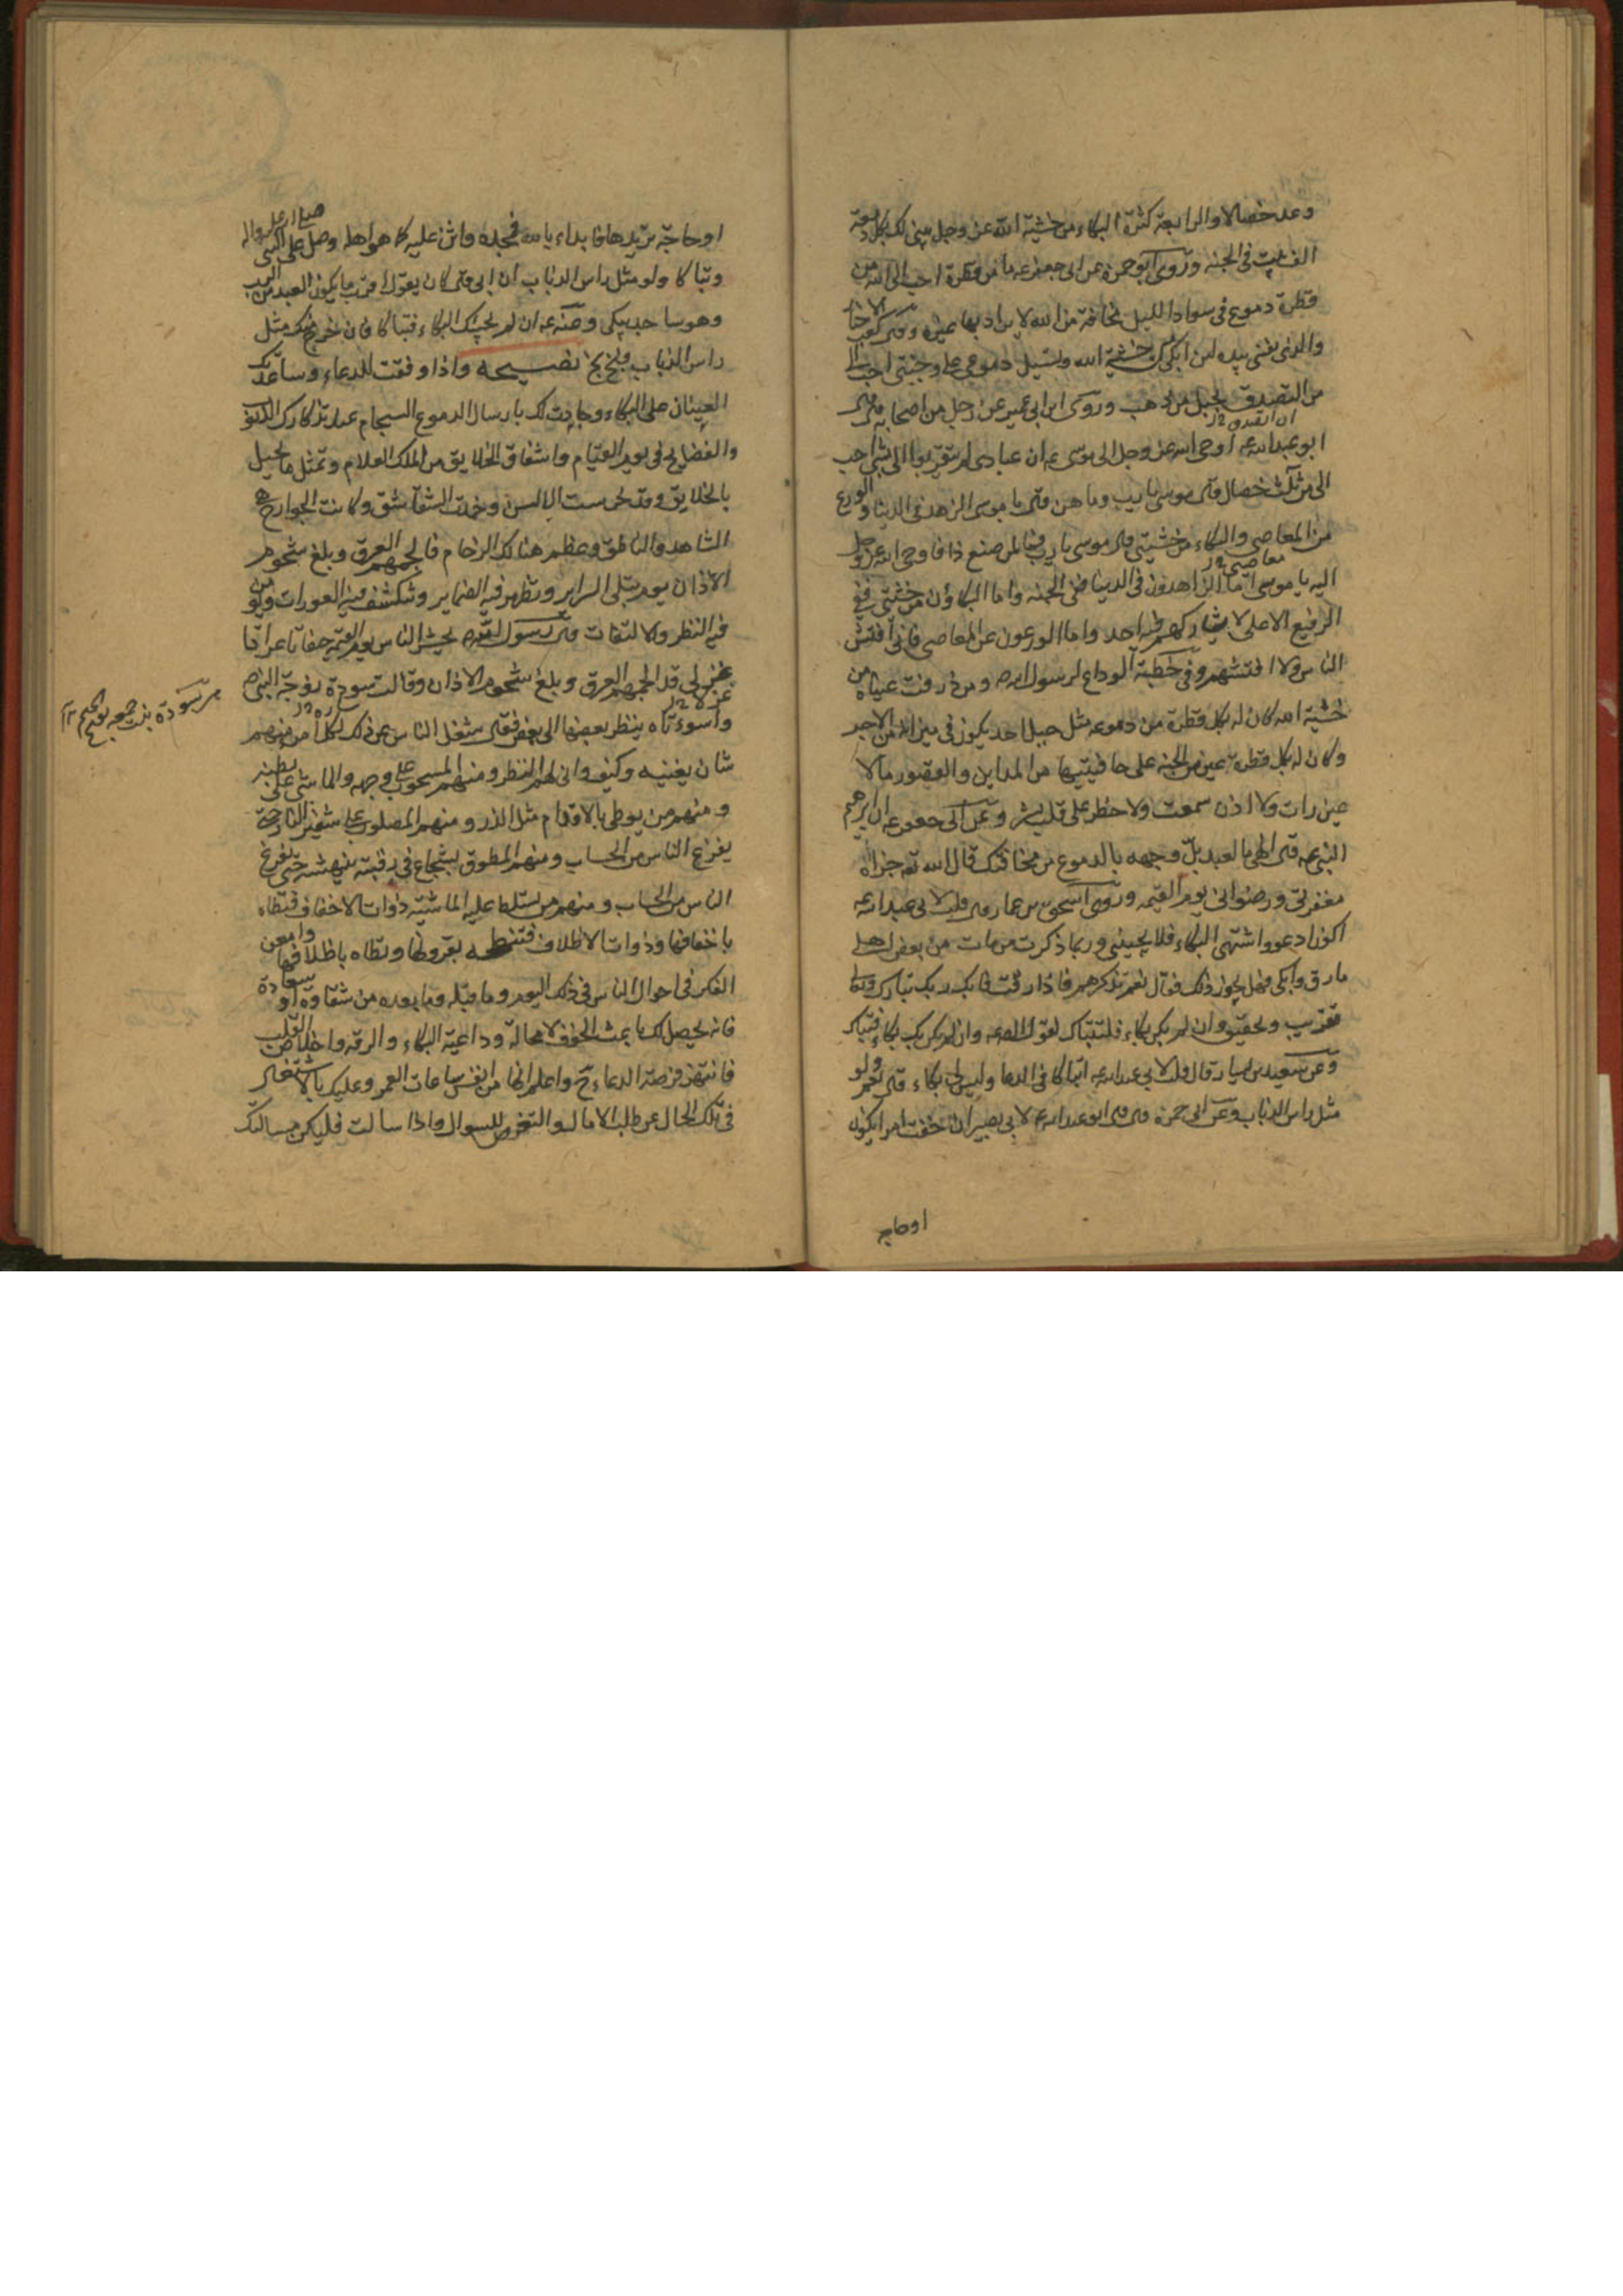 وعد خصالا والرابعة كثرة البكاء من خشية الله عز وجل يبنى لك بكل دمعة
الف بيت فى الجنة وروى ابو حمزة عن ابى جعفر ع ما من قطرة احب الى الله من
قطرة دموع فى سواد الليل مخافة من الله لا يراد بها غيره وقال كعب الاحبار
والذى نفسى بيده لئن ابكى من خشية الله وتسيل دموعى على وجنتى احب الى
من ان اتصدق بجبل من ذهب وروى ابن ابى عمير عن رجل من اصحابه قال قال
ابو عبد الله ع اوحى الله عز وجل الى موسى ع ان عبادى لم يتقربوا الى بشئ احب
الى من ثلث خصال قال موسى يا رب وما هن قال يا موسى الزهد فى الدنيا والورع
من المعاصى والبكاء من خشيتى قال موسى يا رب فما لمن صنع ذا فاوحى الله عز وجل
اليه يا موسى اما الزاهدون فى الدنيا ففى الجنة واما البكاؤن من خشيتى ففى
الرفيع الاعلى لا يشاركهم فيه احد واما الورعون عن المعاصى فانى افتش
الناس ولا افتشهم وفى خطبة الوداع لرسول الله ص ومن ذرفت عيناه من
خشية الله كان له بكل قطرة من دموعه مثل جبل احد يكون فى ميزانه من الاجر
وكان له بكل قطرة عين من الجنة على حافيتيها من المداين والقصور ما لا
عين رات ولا اذن سمعت ولا خطر على قلب بشر وعن ابى جعفر ع ان ابرهيم
النبى ع قال الهى ما لعبد بل وجهه بالدموع من مخافتك قال الله تع جزاؤه
مغفرتى ورضوانى يوم القيمه وروى اسحق بن عمار قال قلت لابى عبد الله ع
اكون ادعو واشتهى البكاء فلا يجيئنى وربما ذكرت من مات من بعض اهلى
فارق وابكى فهل يجوز ذلك فقال نعم تذكرهم فاذا رققت فابك ربك تبارك وتعالى
وعن سعيد بن يسار قال قلت لابى عبد الله ع اتباكا فى الدعا وليس لى بكاء قال نعم ولو
مثل راس الذباب وعن ابى حمزة قال قال ابو عبد الله ع لابى بصير ان خفت امرا يكون
او حاجة
او حاجة تريدها فابداء بالله فمجده واثن عليه كما هو اهله وصل على النبى صلى الله عليه واله
وتباكا ولو مثل راس الذباب ان ابى قال كان يقول اقرب ما يكون العبد من الرب
وهو ساجد يبكى وعنه ع ان لم يجئك البكاء فتباكا فان خرج منك مثل
راس الذباب فبخ بخ نصيحة واذا وفقت للدعاء وساعدتك
العينان على البكاء وجادت لك بارسال الدموع السجام عند تذكارك الذنوب
والفضايح فى يوم القيام واشفاق الخلايق من الملك العلام وتمثل ما يحل
بالخلايق وقد خرست الالسن وخمدت الشقاشق وكانت الجوارح هى
الشاهد والناطق وعظم هنالك الزحام فالجمهم العرق وبلغ شحوم
الاذان يوم تبلى السراير وتظهر فيه الضماير وتنكشف فيه العورات ويؤمن
فيه النظر والالتفات قال رسول الله ص يحشر الناس يوم القيمة حفاتا عراتا
غرلا قد الجمهم العرق وبلغ شحوم الاذان وقالت سودة زوجة النبى ص
واسوءتاه ينظر بعضنا الى بعض فقال شغل الناس عن ذلك لكل امرئ منهم
شان يغنيه وكيف وانى لهم النظر ومنهم المسحوب على وجهه والماشى على بطنه
ومنهم من يوطى بالاقدام مثل الذر ومنهم المصلوب على شفير النار حتى
يفرغ الناس من الحساب ومنهم المطوق بشجاع فى رقبته ينهشه حتى يفرغ
الناس من الحساب ومنهم من تسلط عليه الماشية ذوات الاخفاف فتطاه
باخفافها وذوات الاظلاف فتنطحه بقرونها وتطاه باظلافها وامعن
الفكر فى احوال الناس فى ذلك اليوم وما قبله وما بعده من شقاوة او سعادة
فانه يحصل لك باعث الخوف لا محالة وداعية البكاء والرقة واخلاص القلب
فانتهز فرصة الدعاء ح واعلم انها من انفس ساعات العمر وعليك بالاشتغال
فى تلك الحال عن طلب الامال والتعرض للسوال واذا سالت فليكن مسالتك
سودة بنت